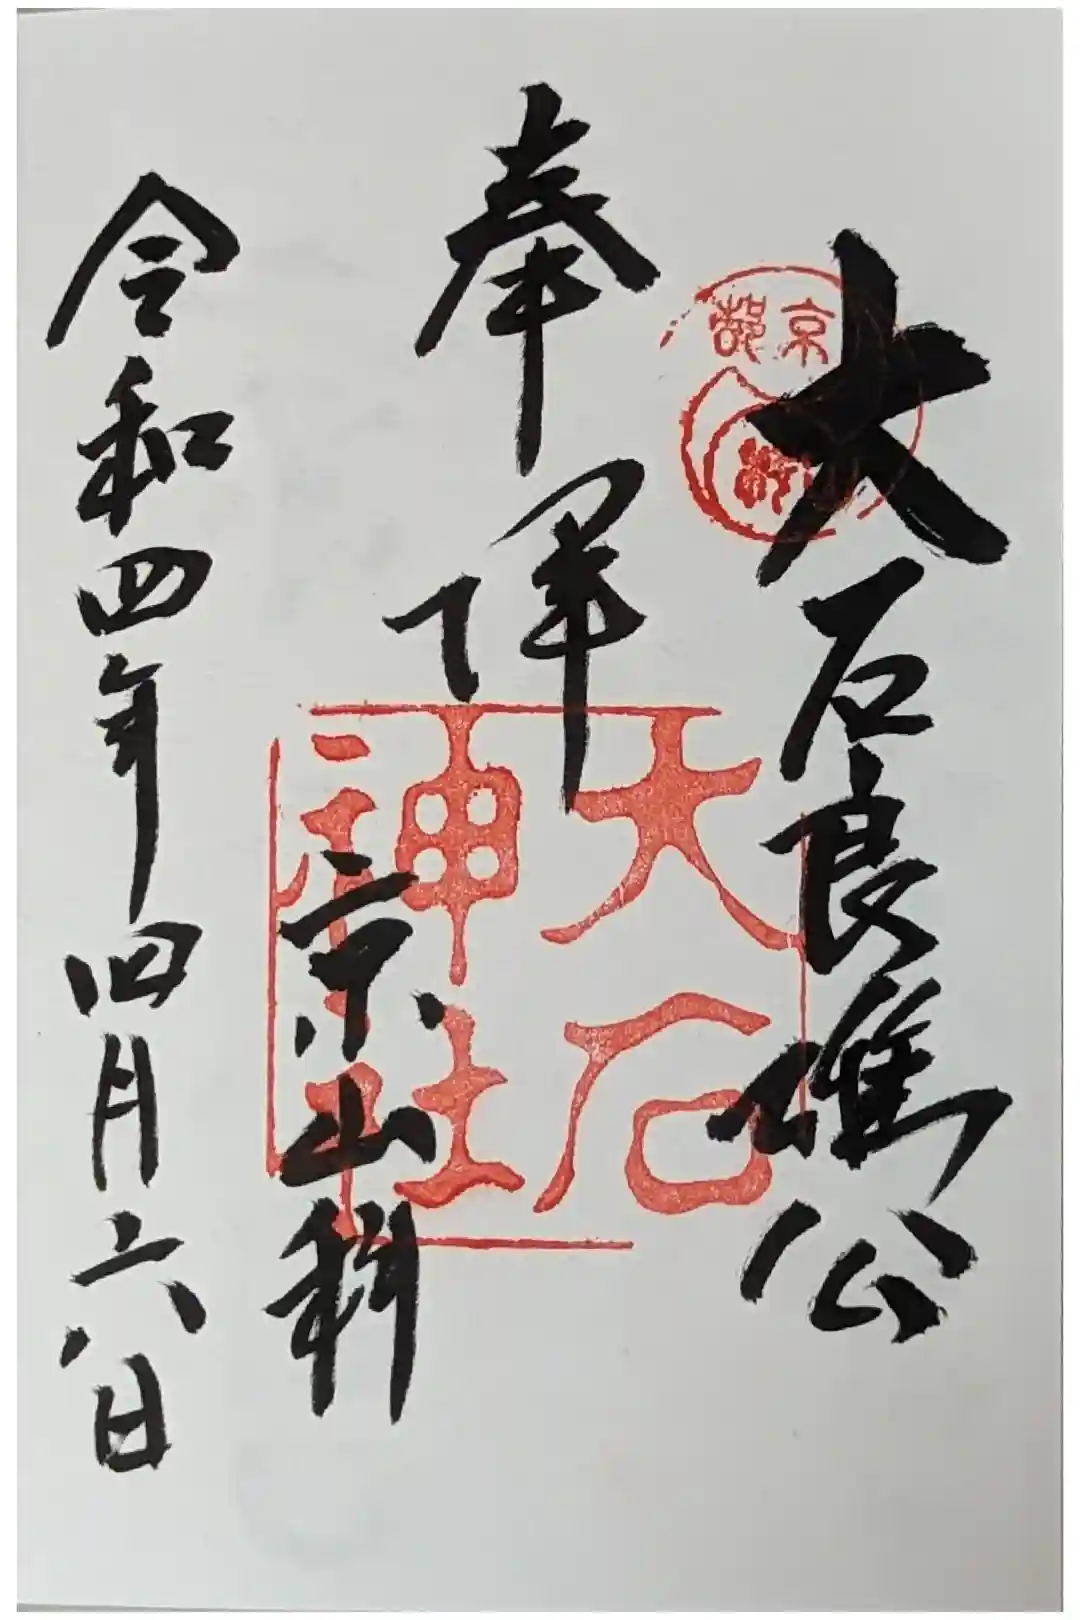 大石良雄公
京都
奉拝
大石
神社
京山科
令和四年四月六日